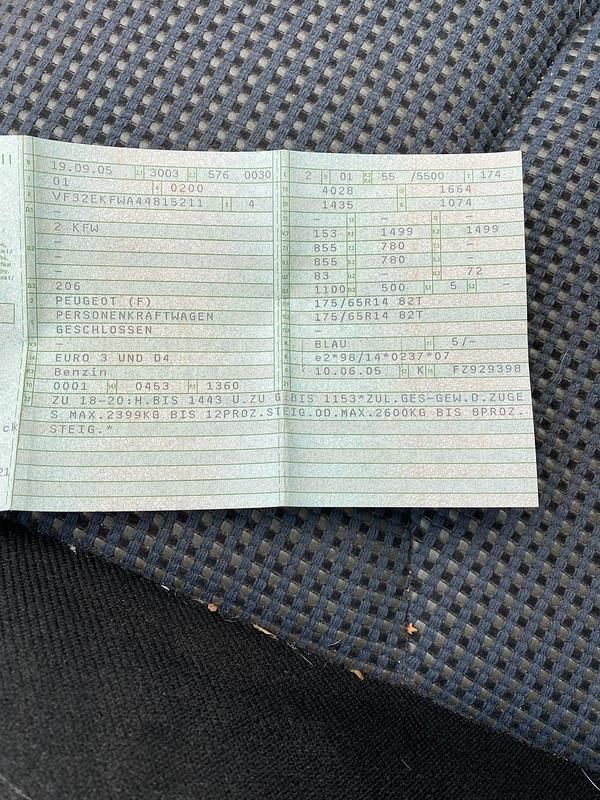 19.09.05 3003 576 0030
01 0200
VF32EKFWA44815211 4
-
2 KFW
-
-
206
PEUGEOT (F)
PERSONENKRAFTWAGEN
GESCHLOSSEN
-
EURO 3 UND D4
Benzin
0001 0453 1360
2 01 55 /5500 174
4028 1664
1435 1074
- - -
153 1499 1499
855 780 -
855 780 -
83 - 72
1100 500 5 -
175/65R14 82T
175/65R14 82T
-
BLAU 5/-
e2*98/14*0237*07
10.06.05 K FZ929398
ZU 18-20:H.BIS 1443 U.ZU G:BIS 1153*ZUL.GES-GEW.D.ZUGE
S MAX.2399KG BIS 12PROZ.STEIG.OD.MAX.2600KG BIS 8PROZ.
STEIG.*